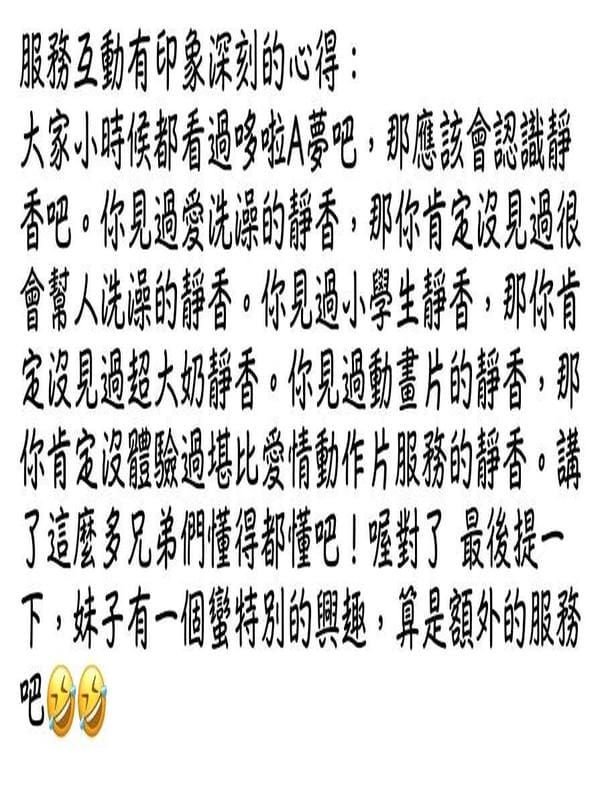 服務互動有印象深刻的心得：
大家小時候都看過哆啦A夢吧，那應該會認識靜
香吧。你見過愛洗澡的靜香，那你肯定沒見過很
會幫人洗澡的靜香。你見過小學生靜香，那你肯
定沒見過超大奶靜香。你見過動畫片的靜香，那
你肯定沒體驗過堪比愛情動作片服務的靜香。講
了這麼多兄弟們懂得都懂吧！喔對了 最後提一
下，妹子有一個蠻特別的興趣，算是額外的服務
吧🤣🤣